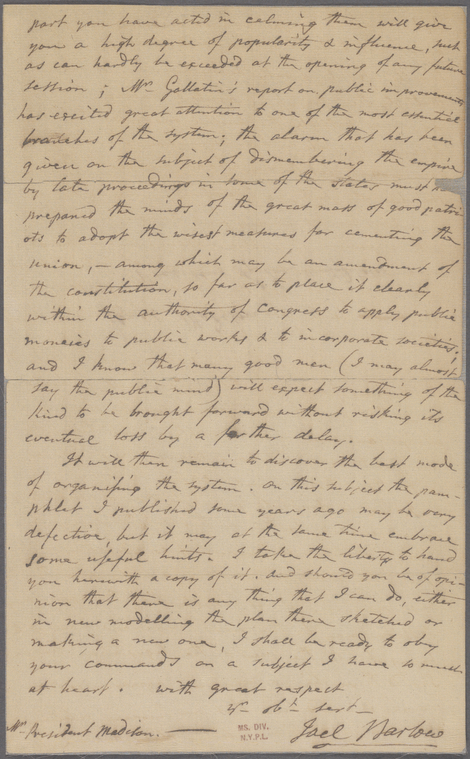 part you have acted in calming them will give
you a high degree of popularity & influence, such
as can hardly be exceeded at the opening of any future
session; Mr. Gallatin's report on public improvements
has excited great attention to one of the most essential
branches of the system; the alarm that has been
given on the subject of dismembering the empire
by late proceedings in some of the States must
prepared the minds of the great mass of good patri
ots to adopt the wisest measures for cementing the
union, – among which may be an amendment of
the constitution, so far as to place it clearly
within the authority of Congress to apply public
monies to public works & to incorporate societies;
and I know that many good men (I may almost
say the public mind) will expect something of the
kind to be brought forward without risking its
eventual loss by a farther delay.
It will then remain to discover the best mode
of organising the system. On this subject the pam-
phlet I published some years ago may be very
defective, but it may at the same time embrace
some useful hints. I take the liberty to hand
you herewith a copy of it. And should you be of opi-
nion that there is any thing that I can do, either
in new modelling the plan there sketched or
making a new one, I shall be ready to obey
your commands on a subject I have so much
at heart. with great respect
yr. obt. sert—
Joel Barlow
Mr. President Madison.
MS. DIV.
N.Y.P.L.